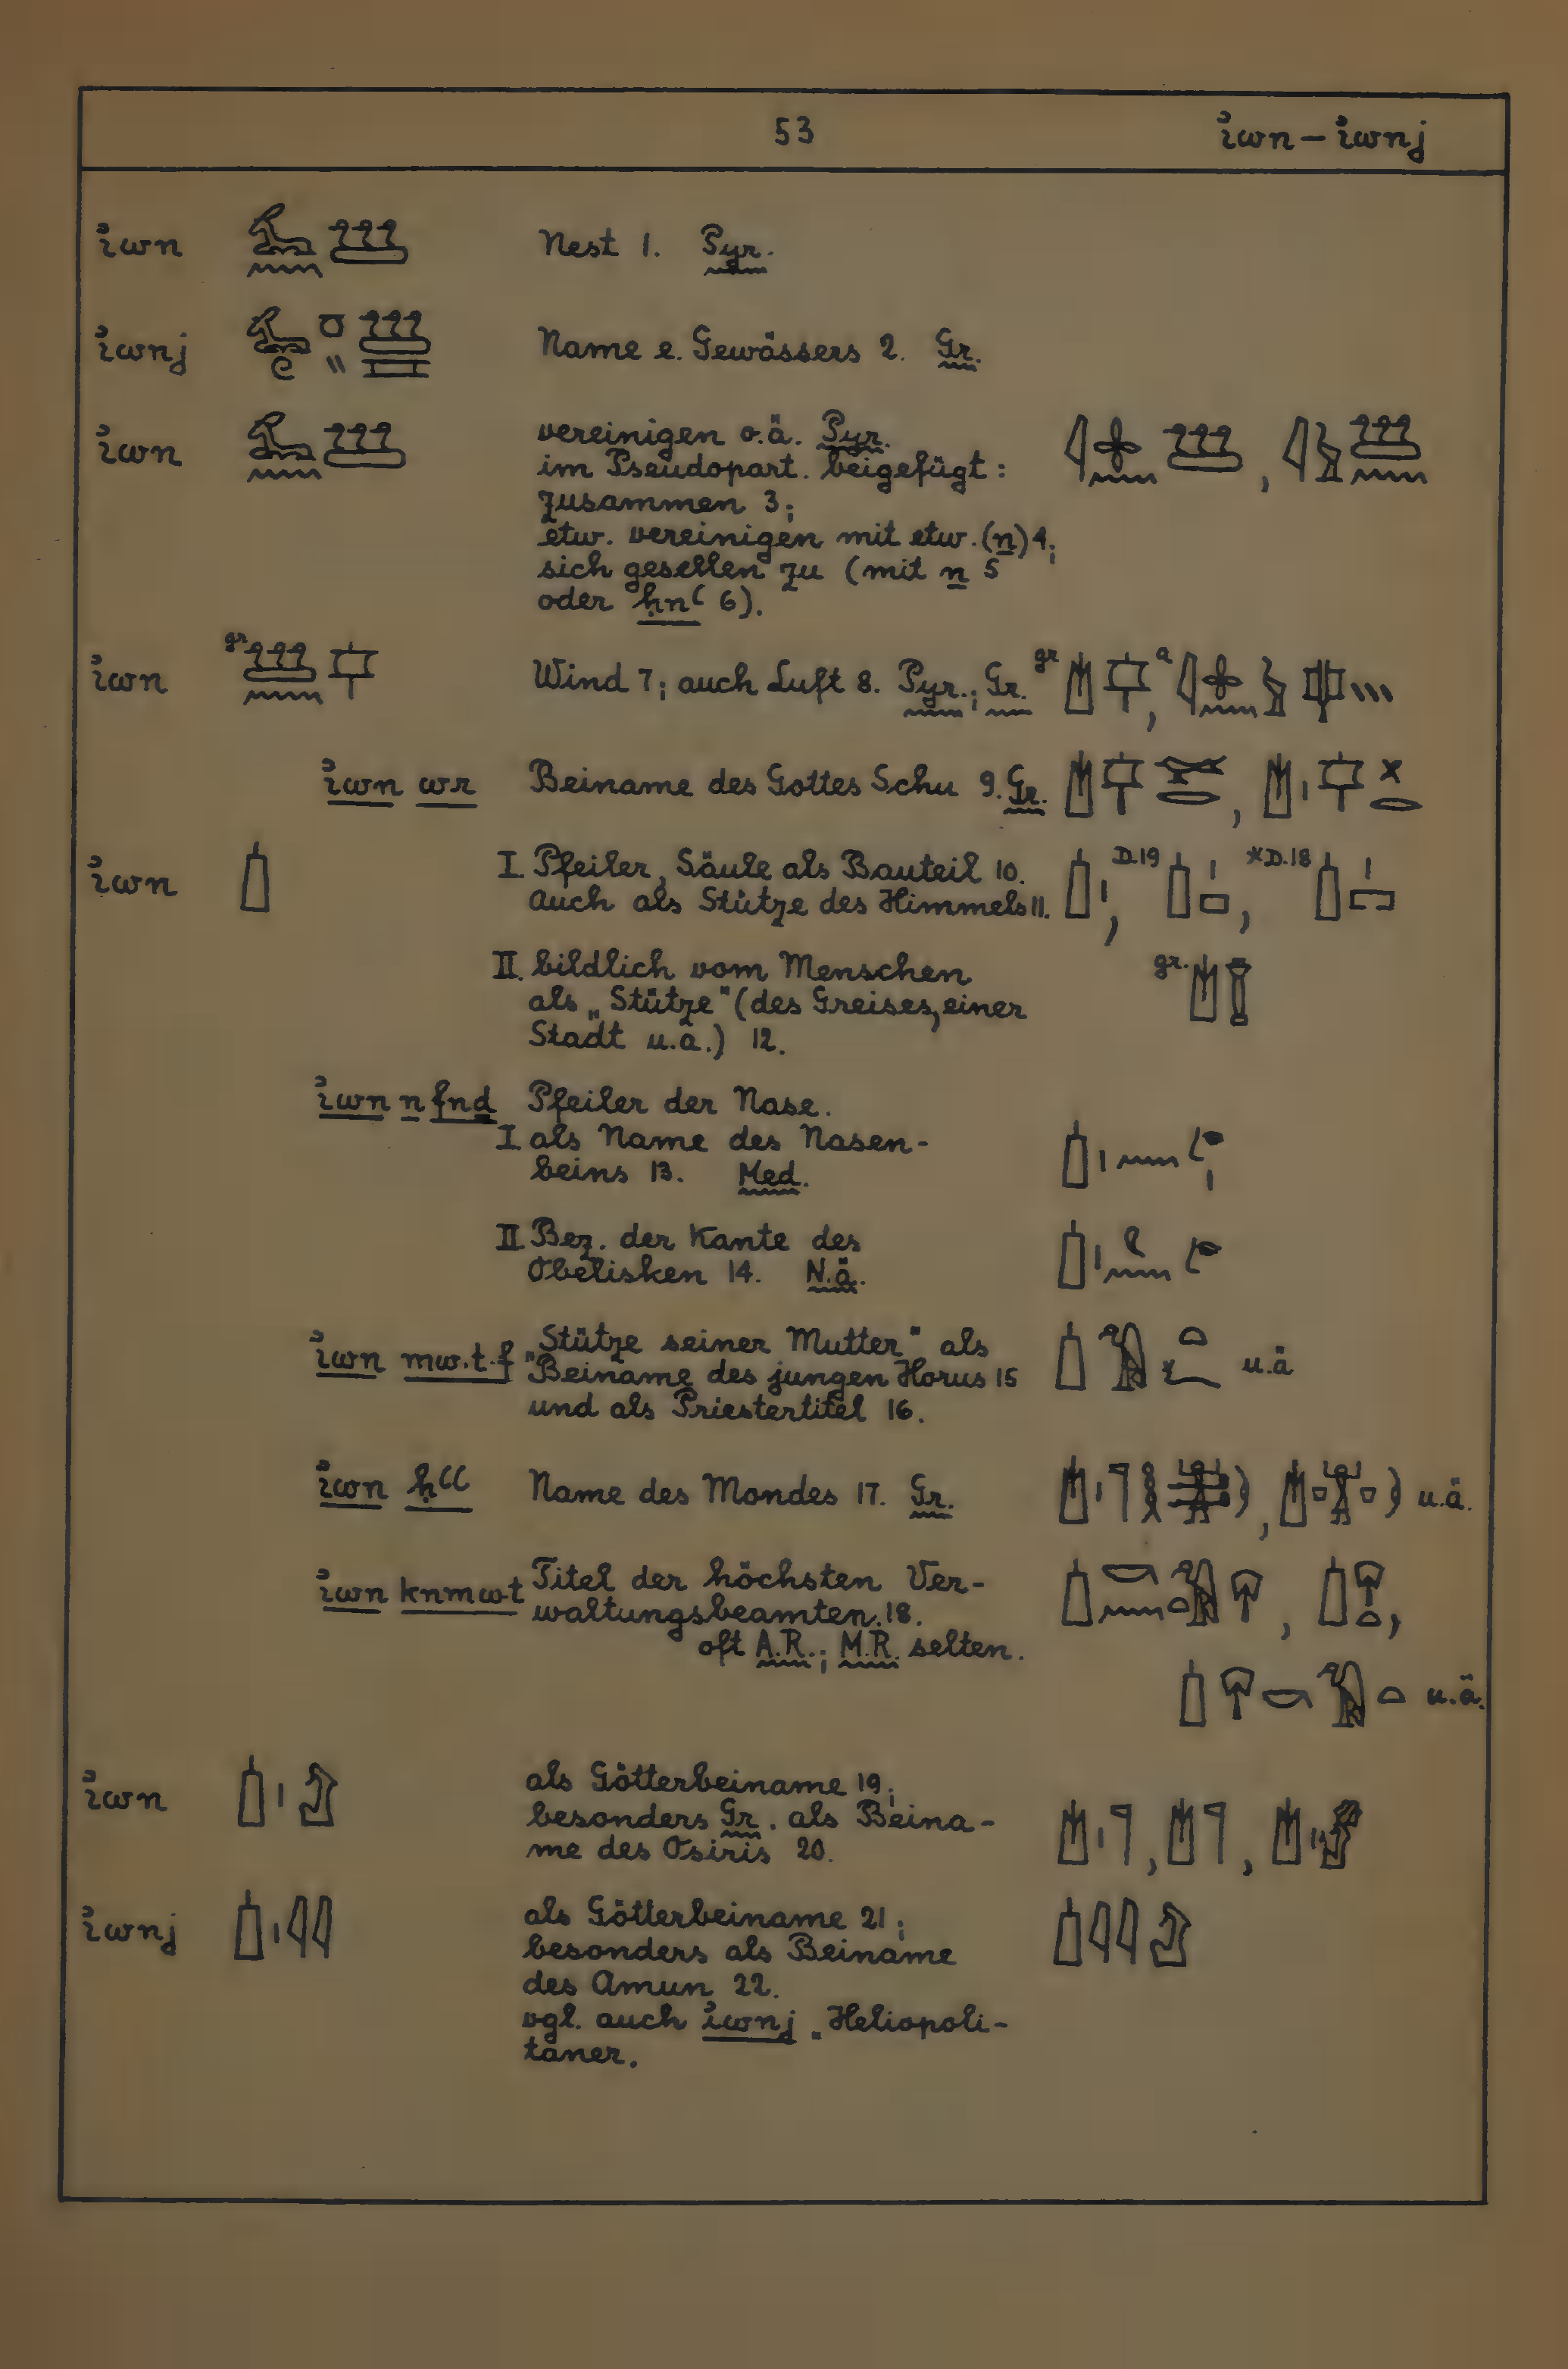 53 ỉwn – ỉwnj
ỉwn Nest 1. Pyr.
ỉwnj Name e. Gewässers 2. Gr.
ỉwn vereinigen o.ä. Pyr.
im Pseudopart. beigefügt:
zusammen 3;
etw. vereinigen mit etw. (n) 4;
sich gesellen zu (mit n 5
oder ḥnꜥ 6).
ỉwn gr Wind 7; auch Luft 8. Pyr.; Gr. gr , a
ỉwn wr Beiname des Gottes Schu 9. Gr. ,
ỉwn I. Pfeiler, Säule als Bauteil 10. , D.19 , *D.18
auch als Stütze des Himmels 11.
II. bildlich vom Menschen gr.
als „Stütze" (des Greises, einer
Stadt u.ä.) 12.
ỉwn n fnḏ Pfeiler der Nase.
I. als Name des Nasen-
beins 13. Med.
II. Bez. der Kante des
Obelisken 14. N.ä.
ỉwn mw.t.f „Stütze seiner Mutter" als u.ä
Beiname des jungen Horus 15
und als Priestertitel 16.
ỉwn ḥꜥꜥ Name des Mondes 17. Gr. , u.ä.
ỉwn knmwt Titel der höchsten Ver-
waltungsbeamten. 18. , ,
oft A.R.; M.R. selten.
u.ä.
ỉwn als Götterbeiname 19;
besonders Gr. als Beina-
me des Osiris 20. , ,
ỉwnj als Götterbeiname 21;
besonders als Beiname
des Amun 22.
vgl. auch ỉwnj „Heliopoli-
taner.